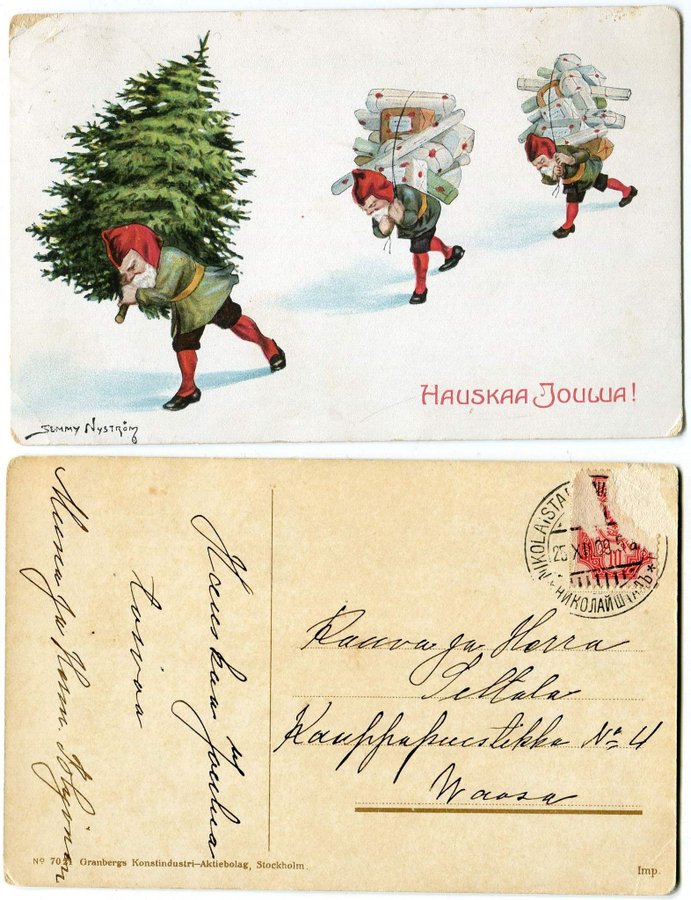 HAUSKAA JOULUA!
JENNY NYSTRÖM
Hauskaa Joulua
toivoo
NIKOLAISTA
25.XII.09.5
НИКОЛАЙШТАДЪ
10
Rouva ja Herra
Peltola
Kauppapuistikko No 4
Waasa
No 702 Granbergs Konstindustri-Aktiebolag, Stockholm.
Imp.